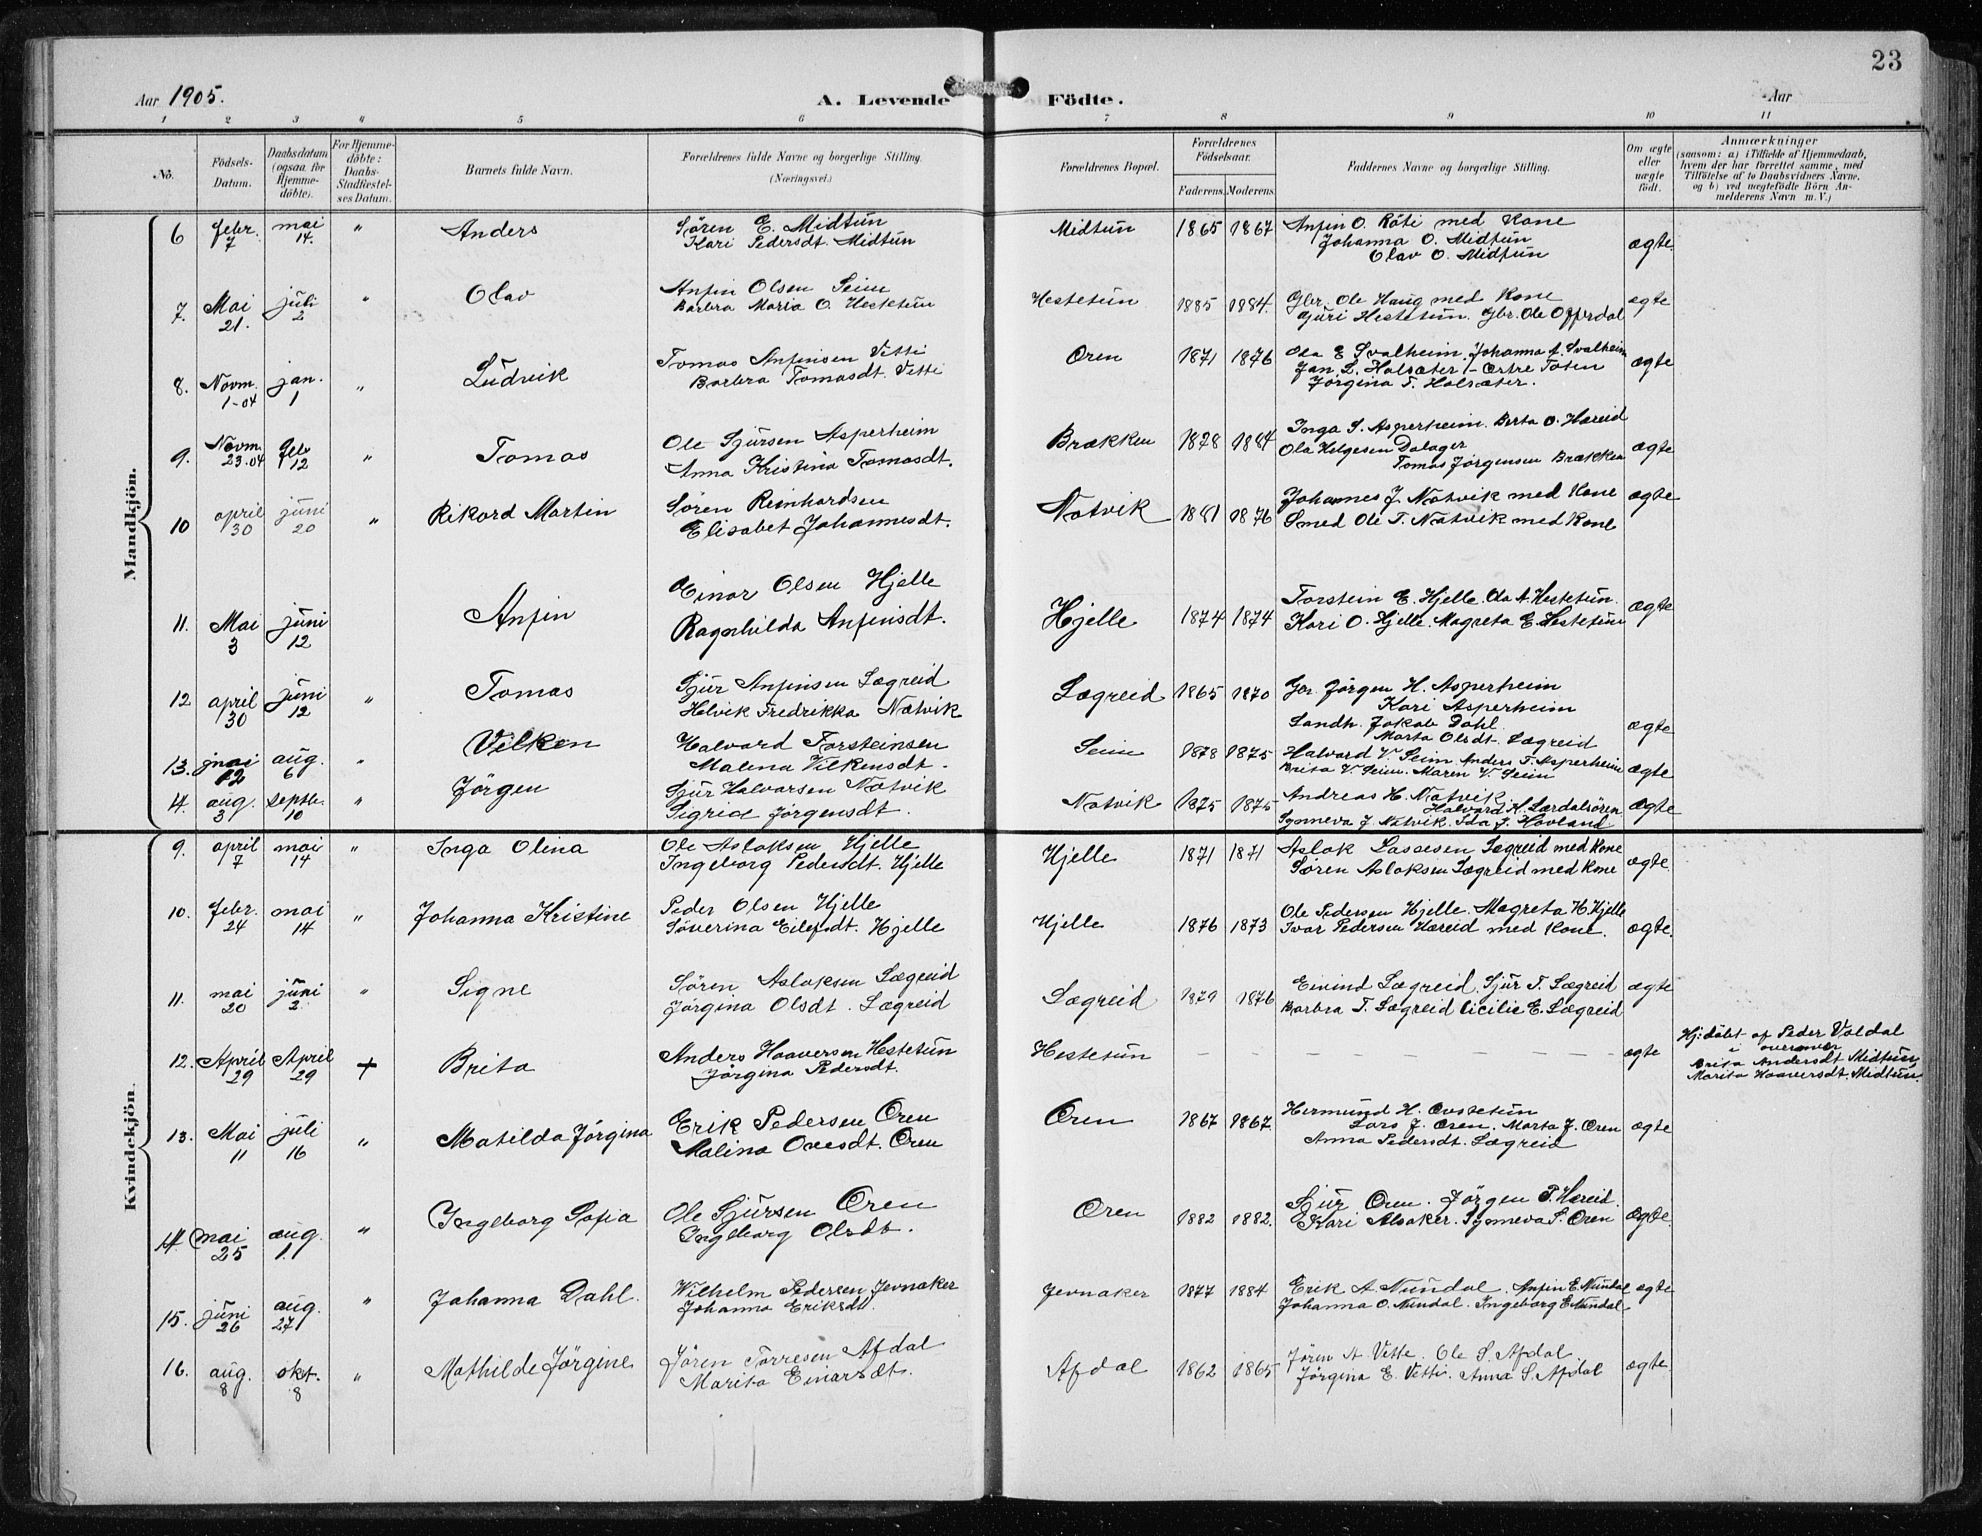 23
Aar 1905. A. Levende Födte. Aar
1 2 3 4 5 6 7 8 9 10 11
No. Födsels-Datum. Daabsdatum (ogsaa for Hjemme-döbte). For Hjemme-döbte: Daabs-Stadfæstel-ses Datum. Barnets fulde Navn. Forældrenes fulde Navne og borgerlige Stilling. (Næringsvei.) Forældrenes Bopæl. Forældrenes Födselsaar. Faderens. Moderens. Faddernes Navne og borgerlige Stilling. Om ægte eller uægte födt. Anmærkninger (saasom: a) i Tilfælde af Hjemmedaab, hvem der har forrettet samme, med Tilföielse af to Daabsvidners Navne, og b) ved uægtefödte Börn An-melderens Navn m. V.)
Mandkjön.
6 febr. 7 mai 14. " Anders Sören E. Midtun Kari Pedersdt. Midtun Midtun 1865 1867 Anfin O. Röti med Kone Johanna O. Midtun Olav O. Midtun ægte.
7. Mai 21. juli 2 " Olav Anfin Olsen Seim Barbra Maria O. Hestetun Hestetun 1885 1884. Gbr. Ole Haug med Kone Guri Hestetun. Gbr. Ole Offerdal ægte
8. Novm. 1-04 jan. 1 " Ludvik Tomas Anfinsen Vetti Barbra Tomasdt. Vetti Oren 1871 1876 Ola E Svalheim. Johanna A. Svalheim Jan. L. Holsæter - Östre Toten Jörgina T. Holsæter. ægte
9. Novm. 23.04 Feb 12 " Tomas Ole Sjursen Asperheim Anna Kristina Tomasdt. Brækken 1878 1884 Inga S. Asperheim. Berta O. Hæreid Ola Helgesen Dalager Tomas Jörgensen Brækken ægte
10 april 30 juni 20 " Rikard Martin Sören Reinhardsen Elisabet Johannesdt. Natvik 1881 1876 Johannes J. Natvik med Kone Smed Ole T. Natvik med Kone ægte
11. Mai 3 juni 12 Anfin Einar Olsen Hjelle Ragnhilda Anfinsdt. Hjelle 1874 1874 Torstein E. Hjelle. Ola A. Hestetun. Kari O. Hjelle. Magreta E. Hestetun ægte
12 april 30 juni 12 " Tomas Sjur Anfinsen Lægreid Helvik Fredrikka Natvik Lægreid 1865 1870 Gbr. Jörgen H. Asperheim Kari Asperheim Landh. Jakob Dahl. Marta Olsdt. Lægreid ægte
13. mai 12 aug. 6 " Vilken Halvard Torsteinsen Malena Vilkensdt. Seim 1878 1875 Halvard V. Seim. Anders T. Asperheim Brita V. Seim. Maren V. Seim ægte
4. aug. 3 septbr. 10 " Jörgen Sjur Halvarsen Natvik Sigrid Jörgensdt. Natvik 1875 1875 Andreas H. Natvik Halvard H. Lærdalsören Synneva J. Natvik. Ida J. Hovland ægte
Kvindekjön.
9. april 7 mai 14 " Inga Olina Ole Aslaksen Hjelle Ingeborg Pedersdt. Hjelle Hjelle 1871 1871 Aslak Lassesen Lægreid med Kone Sören Aslaksen Lægreid med Kone ægte.
10. febr. 24 mai 14 " Johanna Kristine Peder Olsen Hjelle Söverina Eilefsdt. Hjelle Hjelle 1876 1873 Ole Pedersen Hjelle. Magreta H. Hjelle Ivar Pedersen Hæreid med Kone. ægte.
11. mai 20 juni 2 " Signe Sören Aslaksen Lægreid Jörgina Olsdt. Lægreid Lægreid 1879 1876 Eivind Lægreid. Sjur T. Lægreid Barbra T. Lægreid Cicilie E. Lægreid ægte
12. April 29 April 29 + Brita Anders Haaversen Hestetun Jörgina Pedersdt. Hestetun — — — — — — — ægte Hj.döbt af Peder Voldal i overvær Brita Andersdt Midtun Marita Haaversdt. Midtun.
13. Mai 11 juli 16 " Matilda Jörgina Erik Pedersen Oren Malina Ovesdt. Oren Oren 1867 1867. Hermund H. Ovstetun Lars J. Oren. Marta J. Oren Anna Pedersdt. Lægreid ægte
14 mai 25 aug. 1. " Ingeborg Sofia Ole Sjursen Oren Ingeborg Olsdt. Oren 1882 1882. Sjur Oren. Jörgen P. Hæreid. Kari Alsaker. Synneva S. Oren ægte.
15. juni 26 aug. 27 " Johanna Dahl. Wilhelm Pedersen Jevnaker Johanna Eriksdt. Jevnaker 1877 1884 Erik A. Nundal. Anfin E. Nundal Johanna O. Nundal. Ingeborg E. Nundal ægte
16. aug. 8 okt. 8 " Mathilde Jörgine Jören Torresen Afdal Marita Einarsdt. Afdal 1862 1865 Jören A. Vette. Ole S. Afdal Jörgina E. Vetti. Anna S. Afdal ægte.